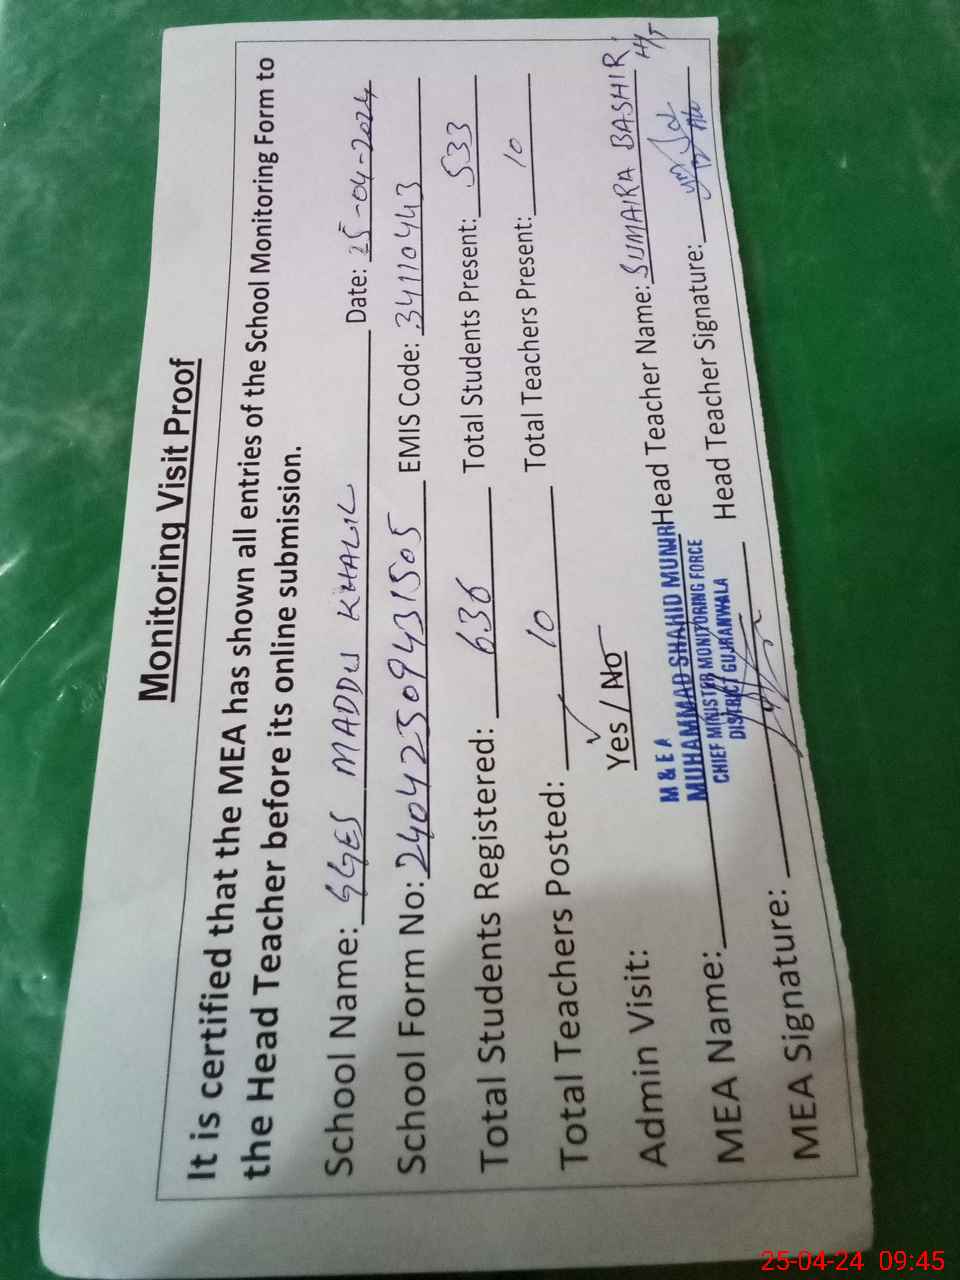 Monitoring Visit Proof
It is certified that the MEA has shown all entries of the School Monitoring Form to
the Head Teacher before its online submission.
School Name: GGES MADDU KHALIL Date: 25-04-2024
School Form No: 24042509431505 EMIS Code: 34110443
Total Students Registered: 636 Total Students Present: 533
Total Teachers Posted: 10 Total Teachers Present: 10
Admin Visit: Yes / No
M & E A
MEA Name: MUHAMMAD SHAHID MUNIR Head Teacher Name: SUMAIRA BASHIR H/T
CHIEF MINISTER MONITORING FORCE
DISTRICT GUJRANWALA
MEA Signature: Head Teacher Signature:
25-04-24 09:45